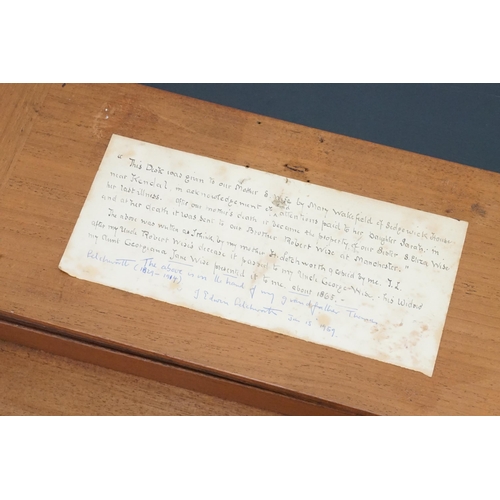 "This Desk was given to our Mother E. Wise by Mary Wakefield of Sedgewick House
near Kendal, in acknowledgement of attentions paid to her Daughter Sarah, in
her last illness. after our mother's death it became the property of our Sister S Eliza Wise
and at her death it was sent to our Brother Robert Wise at Manchester."
The above was written as I think by my mother
after my Uncle Robert Wise's decease it passed to my Uncle George Wise, his Widow
my Aunt Georgiana Jane Wise presented it to me about 1888."
The above is in the hand of my grandfather Thomas
(1849-1927)
J Edwin Jan 18 1969.